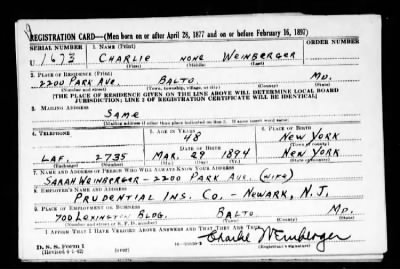 REGISTRATION CARD—(Men born on or after April 28, 1877 and on or before February 16, 1897)
SERIAL NUMBER 1. NAME (Print) ORDER NUMBER
U 1673 CHARLIE NONE WEINBERGER
(First) (Middle) (Last)
2. PLACE OF RESIDENCE (Print)
2200 PARK AVE. BALTO. MD.
(Number and street) (Town, township, village, or city) (County) (State)
[THE PLACE OF RESIDENCE GIVEN ON THE LINE ABOVE WILL DETERMINE LOCAL BOARD
JURISDICTION; LINE 2 OF REGISTRATION CERTIFICATE WILL BE IDENTICAL]
3. MAILING ADDRESS
SAME
[Mailing address if other than place indicated on line 2. If same insert word same]
4. TELEPHONE 5. AGE IN YEARS 6. PLACE OF BIRTH
48 NEW YORK
DATE OF BIRTH (Town or county)
LAF. 2735 MAR. 29 1894 NEW YORK
(Exchange) (Number) (Mo.) (Day) (Yr.) (State or country)
7. NAME AND ADDRESS OF PERSON WHO WILL ALWAYS KNOW YOUR ADDRESS
SARAH WEINBERGER - 2200 PARK AVE. (WIFE)
8. EMPLOYER'S NAME AND ADDRESS
PRUDENTIAL INS. CO. - NEWARK, N. J.
9. PLACE OF EMPLOYMENT OR BUSINESS
700 LEXINGTON BLDG. BALTO. MD.
(Number and street or R. F. D. number) (Town) (County) (State)
I AFFIRM THAT I HAVE VERIFIED ABOVE ANSWERS AND THAT THEY ARE TRUE.
D. S. S. Form 1
(Revised 4-1-42) (over) Charlie Weinberger
(Registrant's signature)